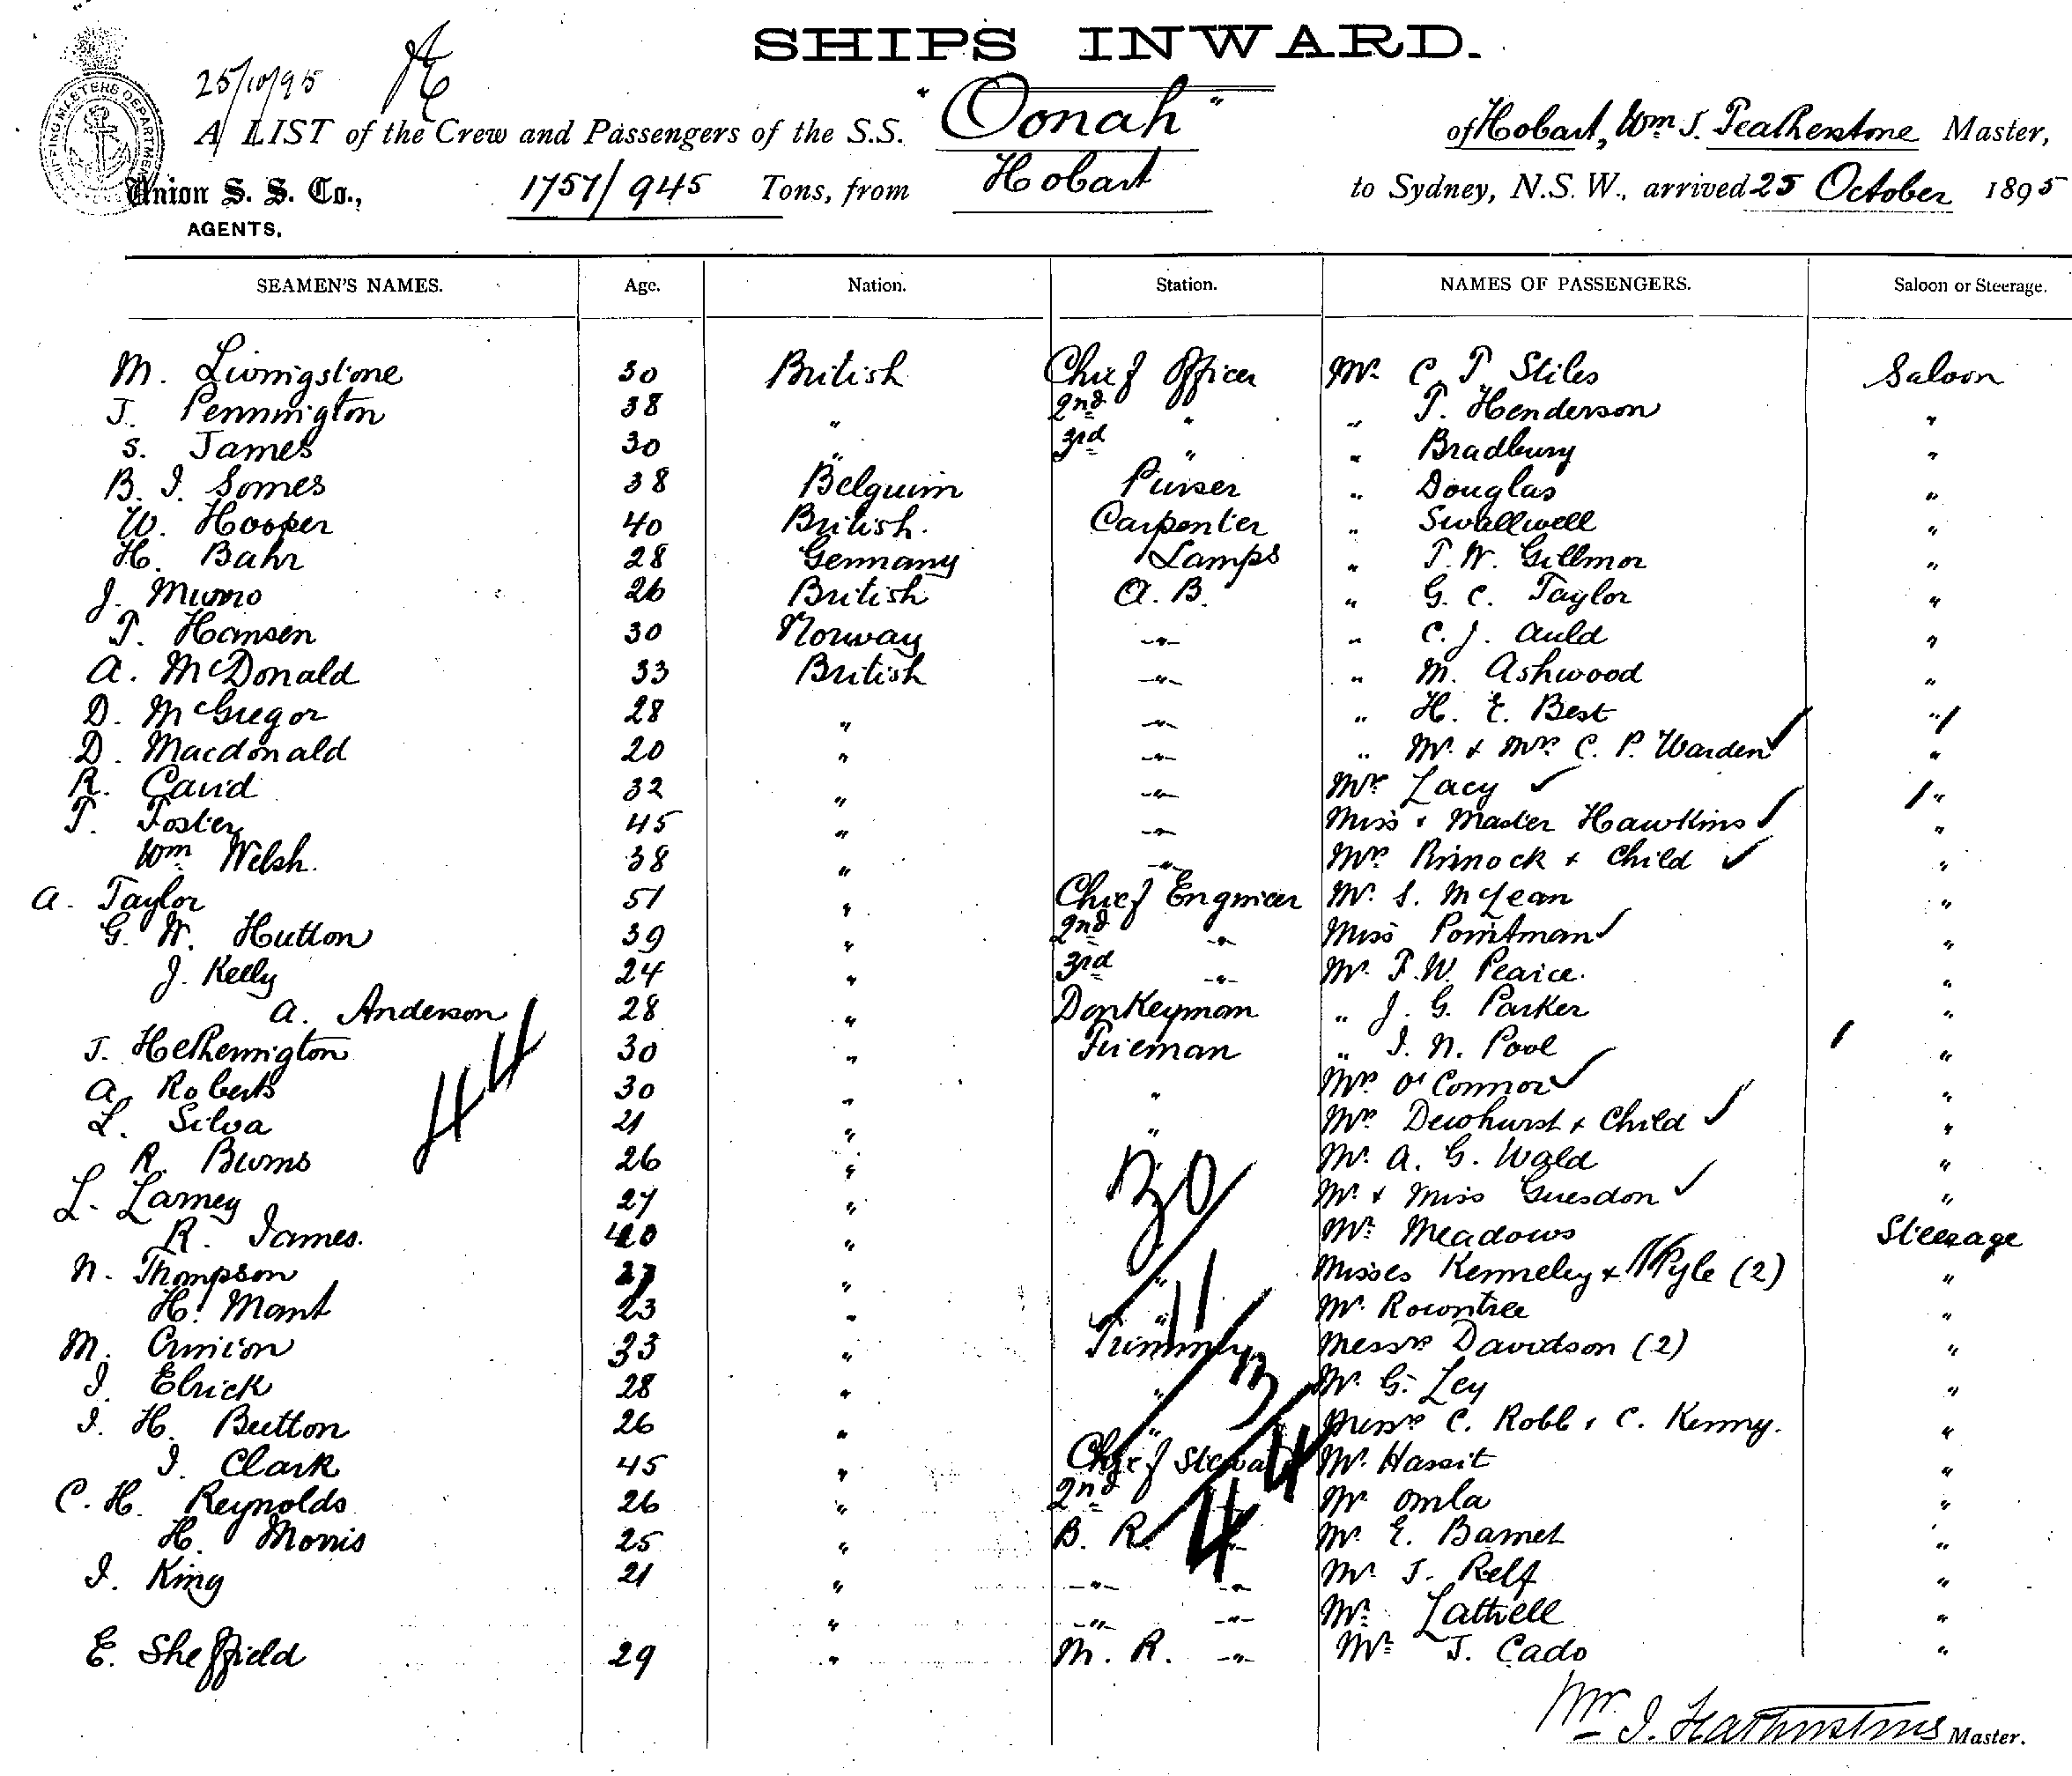 SHIPS INWARD.
25/10/95
SHIPPING MASTERS DEPARTMENT
A LIST of the Crew and Passengers of the S.S. "Oonah" of Hobart, Wm J. Featherstone Master,
Union S. S. Co., AGENTS. 1757/945 Tons, from Hobart to Sydney, N.S.W., arrived 25 October 1895
SEAMEN'S NAMES. Age. Nation. Station. NAMES OF PASSENGERS. Saloon or Steerage.
M. Livingstone 30 British Chief Officer Mr. C. T. Stiles Saloon
J. Pennington 38 " 2nd " " T. Henderson "
S. James 30 " 3rd " " Bradbury "
B. J. Somes 38 Belguim Purser " Douglas "
W. Hooper 40 British. Carpenter " Swallwell "
H. Bahr 28 Germany Lamps " T. W. Gillmor "
J. Munro 26 British A. B. " G. C. Taylor "
T. Hansen 30 Norway -"- " C. J. Auld "
A. McDonald 33 British -"- " M. Ashwood "
D. McGregor 28 " -"- " H. E. Best "
D. Macdonald 20 " -"- " Mr. & Mrs. C. P. Warden "
R. 32 " -"- Mrs Lacy "
T. Foster 45 " -"- Miss & Master Hawkins "
Wm Welsh. 38 " -"- Mrs Pinnock & Child "
A. Taylor 51 " Chief Engineer Mr. S. McLean "
G. W. Hutton 39 " 2nd -"- Miss Pointman "
J. Kelly 24 " 3rd -"- Mr. F. W. Pearce. "
A. Anderson 28 " Donkeyman " J. G. Parker "
J. Hetherington 30 " Fireman " J. N. Pool "
A. Roberts 30 " " Mrs O'Connor "
L. Silva 21 " " Mrs Dewhurst & Child "
R. Burns 26 " Mr. A. G. Wald "
L. Larney 27 " Mr. & Miss Guesdon "
R. James. 40 " Mr. Meadows Steerage
N. Thompson 27 " " Misses Kenneley & Pyle (2) "
H. Mant 23 " " Mr. Rowntree "
M. 33 " Trimmer Messrs Davidson (2) "
J. Elrick 28 " " Mr. G. Ley "
J. H. Button 26 " " Messrs C. Robb & C. Kenny. "
J. Clark 45 " Chief Steward Mr. Hassit "
C. H. Reynolds 26 " 2nd -"- Mr. Omla "
H. Morris 25 " B. R. -"- Mr. E. Barnet "
J. King 21 " -"- -"- Mr. J. Relf "
" -"- -"- Mr. Lattrell "
E. Sheffield 29 " M. R. -"- Mr. J. Cado "
44
30
11
3
44
Wm J. Featherstone Master.